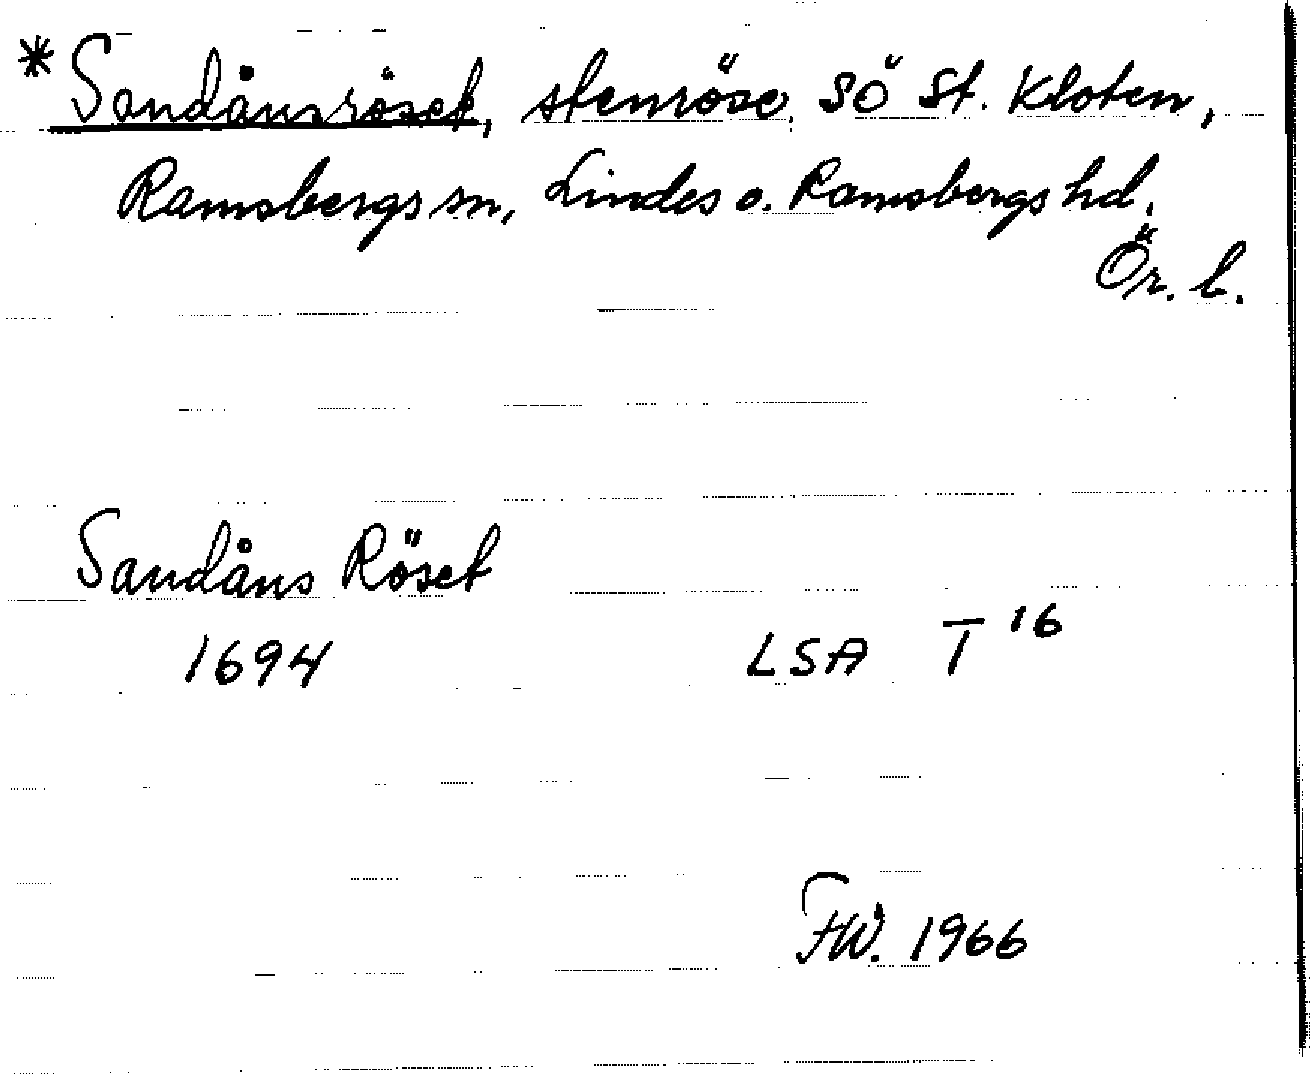 *Sandånsröset, stenröse, SÖ St. Kloten,
Ramsbergs sn, Lindes o. Ramsbergs hd,
Ör. l.
Sandåns Röset
1694 LSA T 16
FW. 1966